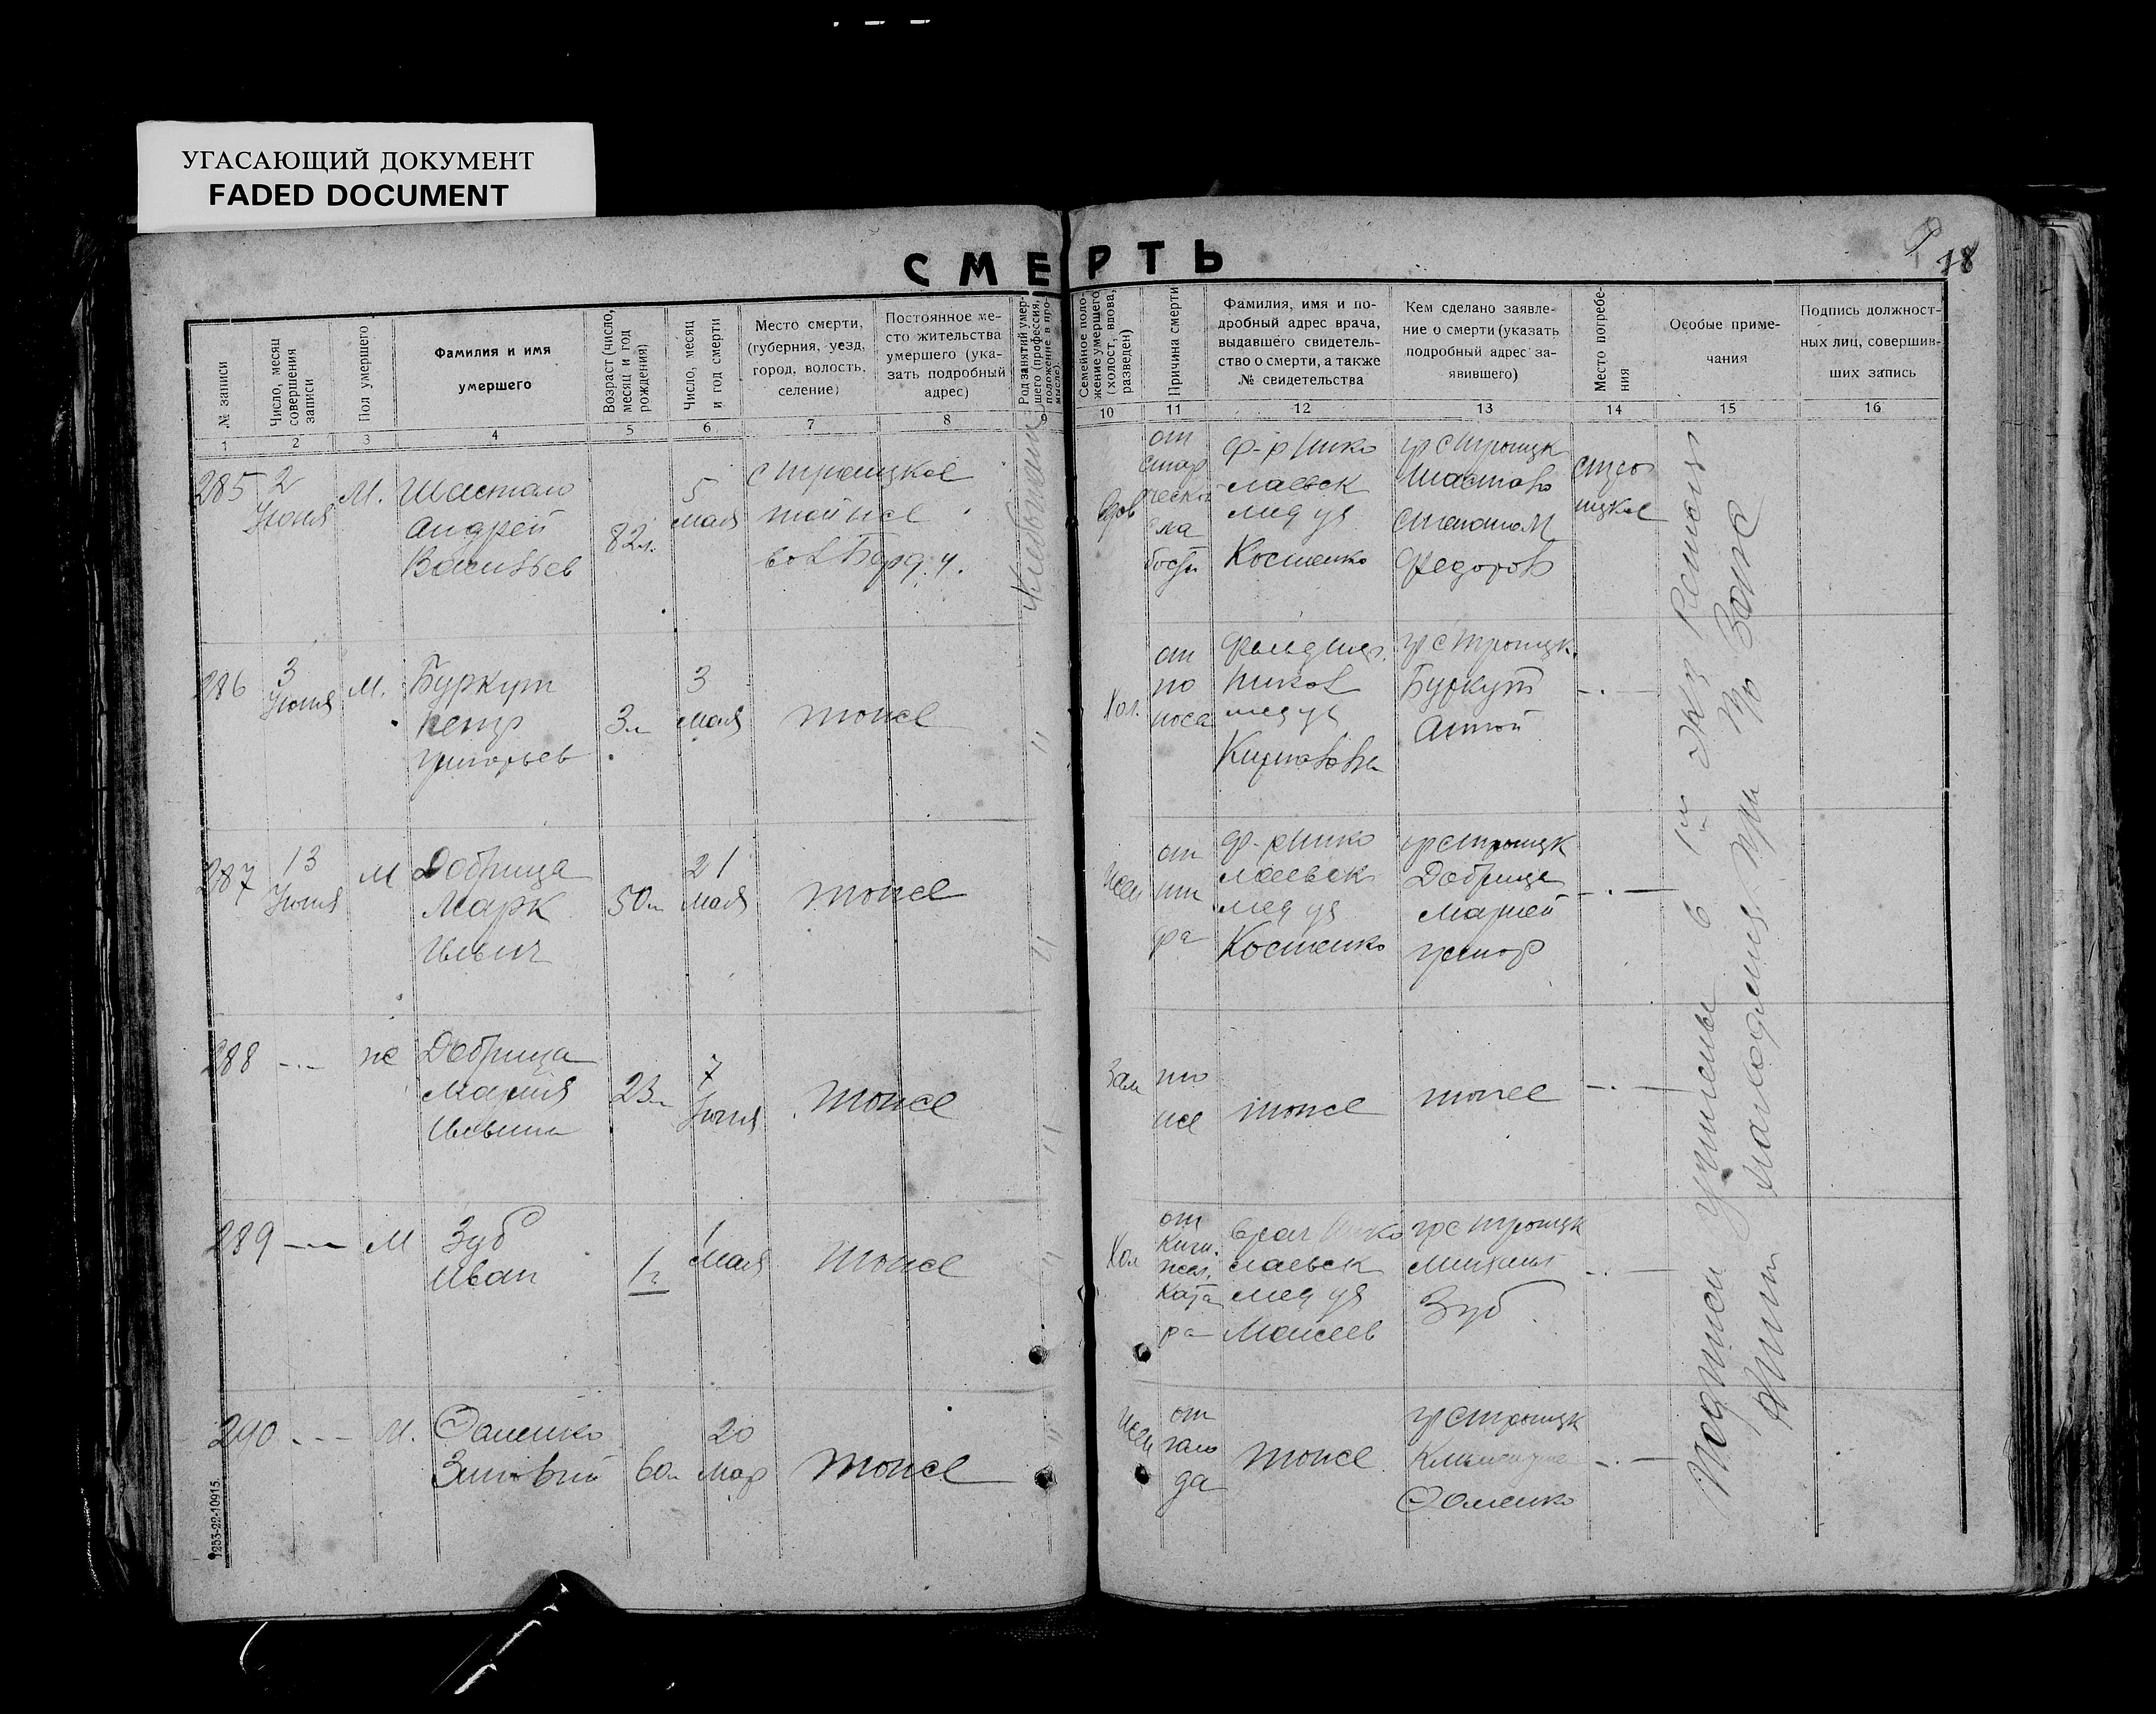 УГАСАЮЩИЙ ДОКУМЕНТ
FADED DOCUMENT
18
СМЕРТЬ
№ записи
Число, месяц
совершения
записи
Пол умершего
Фамилия и имя
умершего
Возраст (число,
месяц и год
рождения)
Число, месяц
и год смерти
Место смерти,
(губерния, уезд,
город, волость,
селение)
Постоянное ме-
сто жительства
умершего (ука-
зать подробный
адрес)
Род занятий умер-
шего (профессия,
положение в про-
мысле).
Семейное поло-
жение умершего
(холост, вдова,
разведен)
Причина смерти
Фамилия, имя и по-
дробный адрес врача,
выдавшего свидетель-
ство о смерти, а также
№ свидетельства
Кем сделано заявле-
ние о смерти (указать
подробный адрес за-
явившего)
Место погребе-
ния
Особые приме-
чания
Подпись должност-
ных лиц, совершив-
ших запись
1 2 3 4 5 6 7 8 9 10 11 12 13 14 15 16
285
2
Июня
М.
Андрей
Васильев
82 л.
5
мая
с Троицкое
той же
вдов
от
стар
ческой
сла
бости
Ф-р Нико
лаевск
мед уч
Костенко
гр с Троицк
Федоров
с Трои
цкое
286
3
Июня
М.
Буркут
Петр
Григорьев
3 л
3
мая
тоже
"
Хол.
от
по
носа
Фельдшер.
Никол
мед уч
гр с Троицк.
Буркут
-.-
287
13
Июня
М
Добрица
Марк
Ильич
50 л
21
мая
тоже
"
жен
от
ти
фа
Ф-р Нико
лаевск
мед уч
Костенко
гр с Троицк
Добрица
Марией
-.-
288
-.-
ж
Добрица
Мария
23 л
7
Июня
тоже
"
Зам
то
же
тоже
тоже
-.-
289
-.-
М
Зуб
Иван
1 г
1
мая
тоже
"
Хол
от
Киш.
жел.
Ката
ра
Врач Нико
лаевск
мед уч
Моисеев
гр с Троицк
Михаил
Зуб
-.-
290
-.-
М.
Фоменко
Зиновий
60 л
20
мар
тоже
"
жен
от
голо
да
тоже
гр с Троицк
Фоменко
-.-
Подписи учинены в 1м экз
находящемся при
1253-22-10915